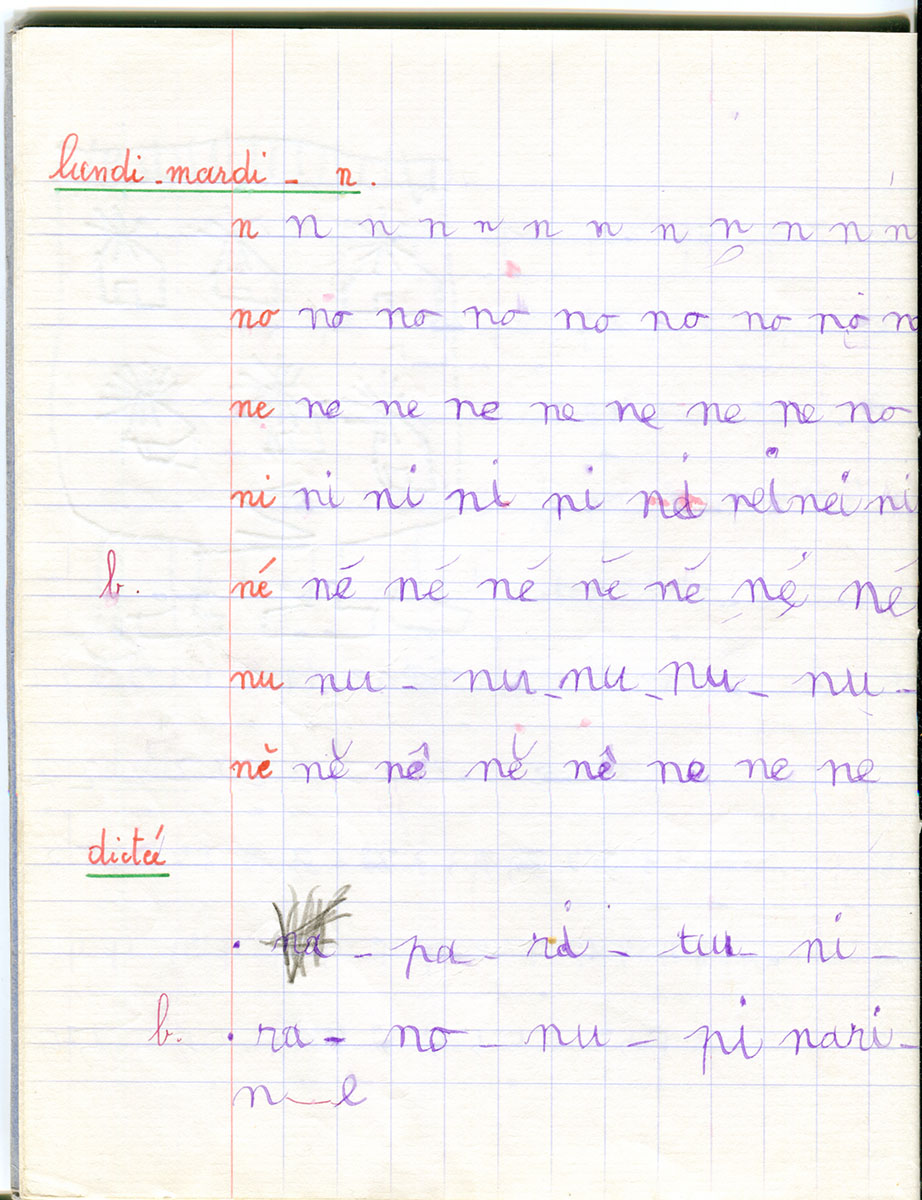 lundi - mardi - n.
n n n n n n n n n n n n
no no no no no no no no n
ne ne ne ne ne ne ne ne no
ni ni ni ni pi ni nei ni
b. né né né né né né né né
nu nu - nu - nu - nu - nu -
nĕ nĕ nê nĕ nê ne ne ne
dictée
. na - pa - ri - tu - ni -
b. . ra - no - nu - pi nari -
n e